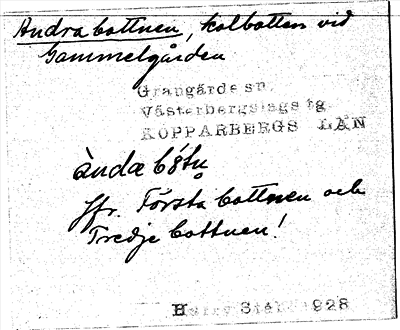 Andra bottnen, kolbotten vid
Gammelgården
Grangärde sn,
Västerbergslags tg
KOPPARBERGS LÄN
Jfr. Första bottnen och
Tredje bottnen!
1928